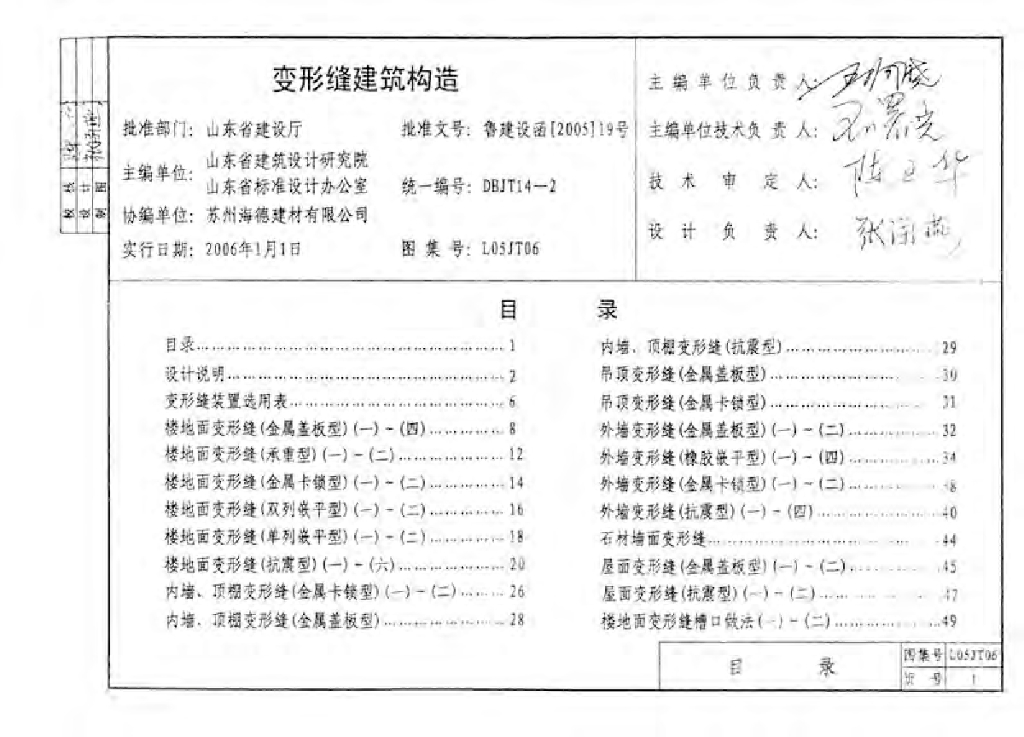 变形缝建筑构造
批准部门: 山东省建设厅 批准文号: 鲁建设函[2005]19号
主编单位: 山东省建筑设计研究院
山东省标准设计办公室 统一编号: DBJT14—2
协编单位: 苏州海德建材有限公司
实行日期: 2006年1月1日 图集号: L05JT06
主编单位负责人:
主编单位技术负责人:
技术审定人:
设计负责人:
目 录
目录 1
设计说明 2
变形缝装置选用表 6
楼地面变形缝(金属盖板型)(一)-(四) 8
楼地面变形缝(承重型)(一)-(二) 12
楼地面变形缝(金属卡锁型)(一)-(二) 14
楼地面变形缝(双列嵌平型)(一)-(二) 16
楼地面变形缝(单列嵌平型)(一)-(二) 18
楼地面变形缝(抗震型)(一)-(六) 20
内墙、顶棚变形缝(金属卡锁型)(一)-(二) 26
内墙、顶棚变形缝(金属盖板型) 28
内墙、顶棚变形缝(抗震型) 29
吊顶变形缝(金属盖板型) 30
吊顶变形缝(金属卡锁型) 31
外墙变形缝(金属盖板型)(一)-(二) 32
外墙变形缝(橡胶嵌平型)(一)-(四) 34
外墙变形缝(金属卡锁型)(一)-(二)
外墙变形缝(抗震型)(一)-(四) 40
石材墙面变形缝 44
屋面变形缝(金属盖板型)(一)-(二) 45
屋面变形缝(抗震型)(一)-(二) 47
楼地面变形缝槽口做法(一)-(二) 49
目 录
图集号 L05JT06
页 号 1